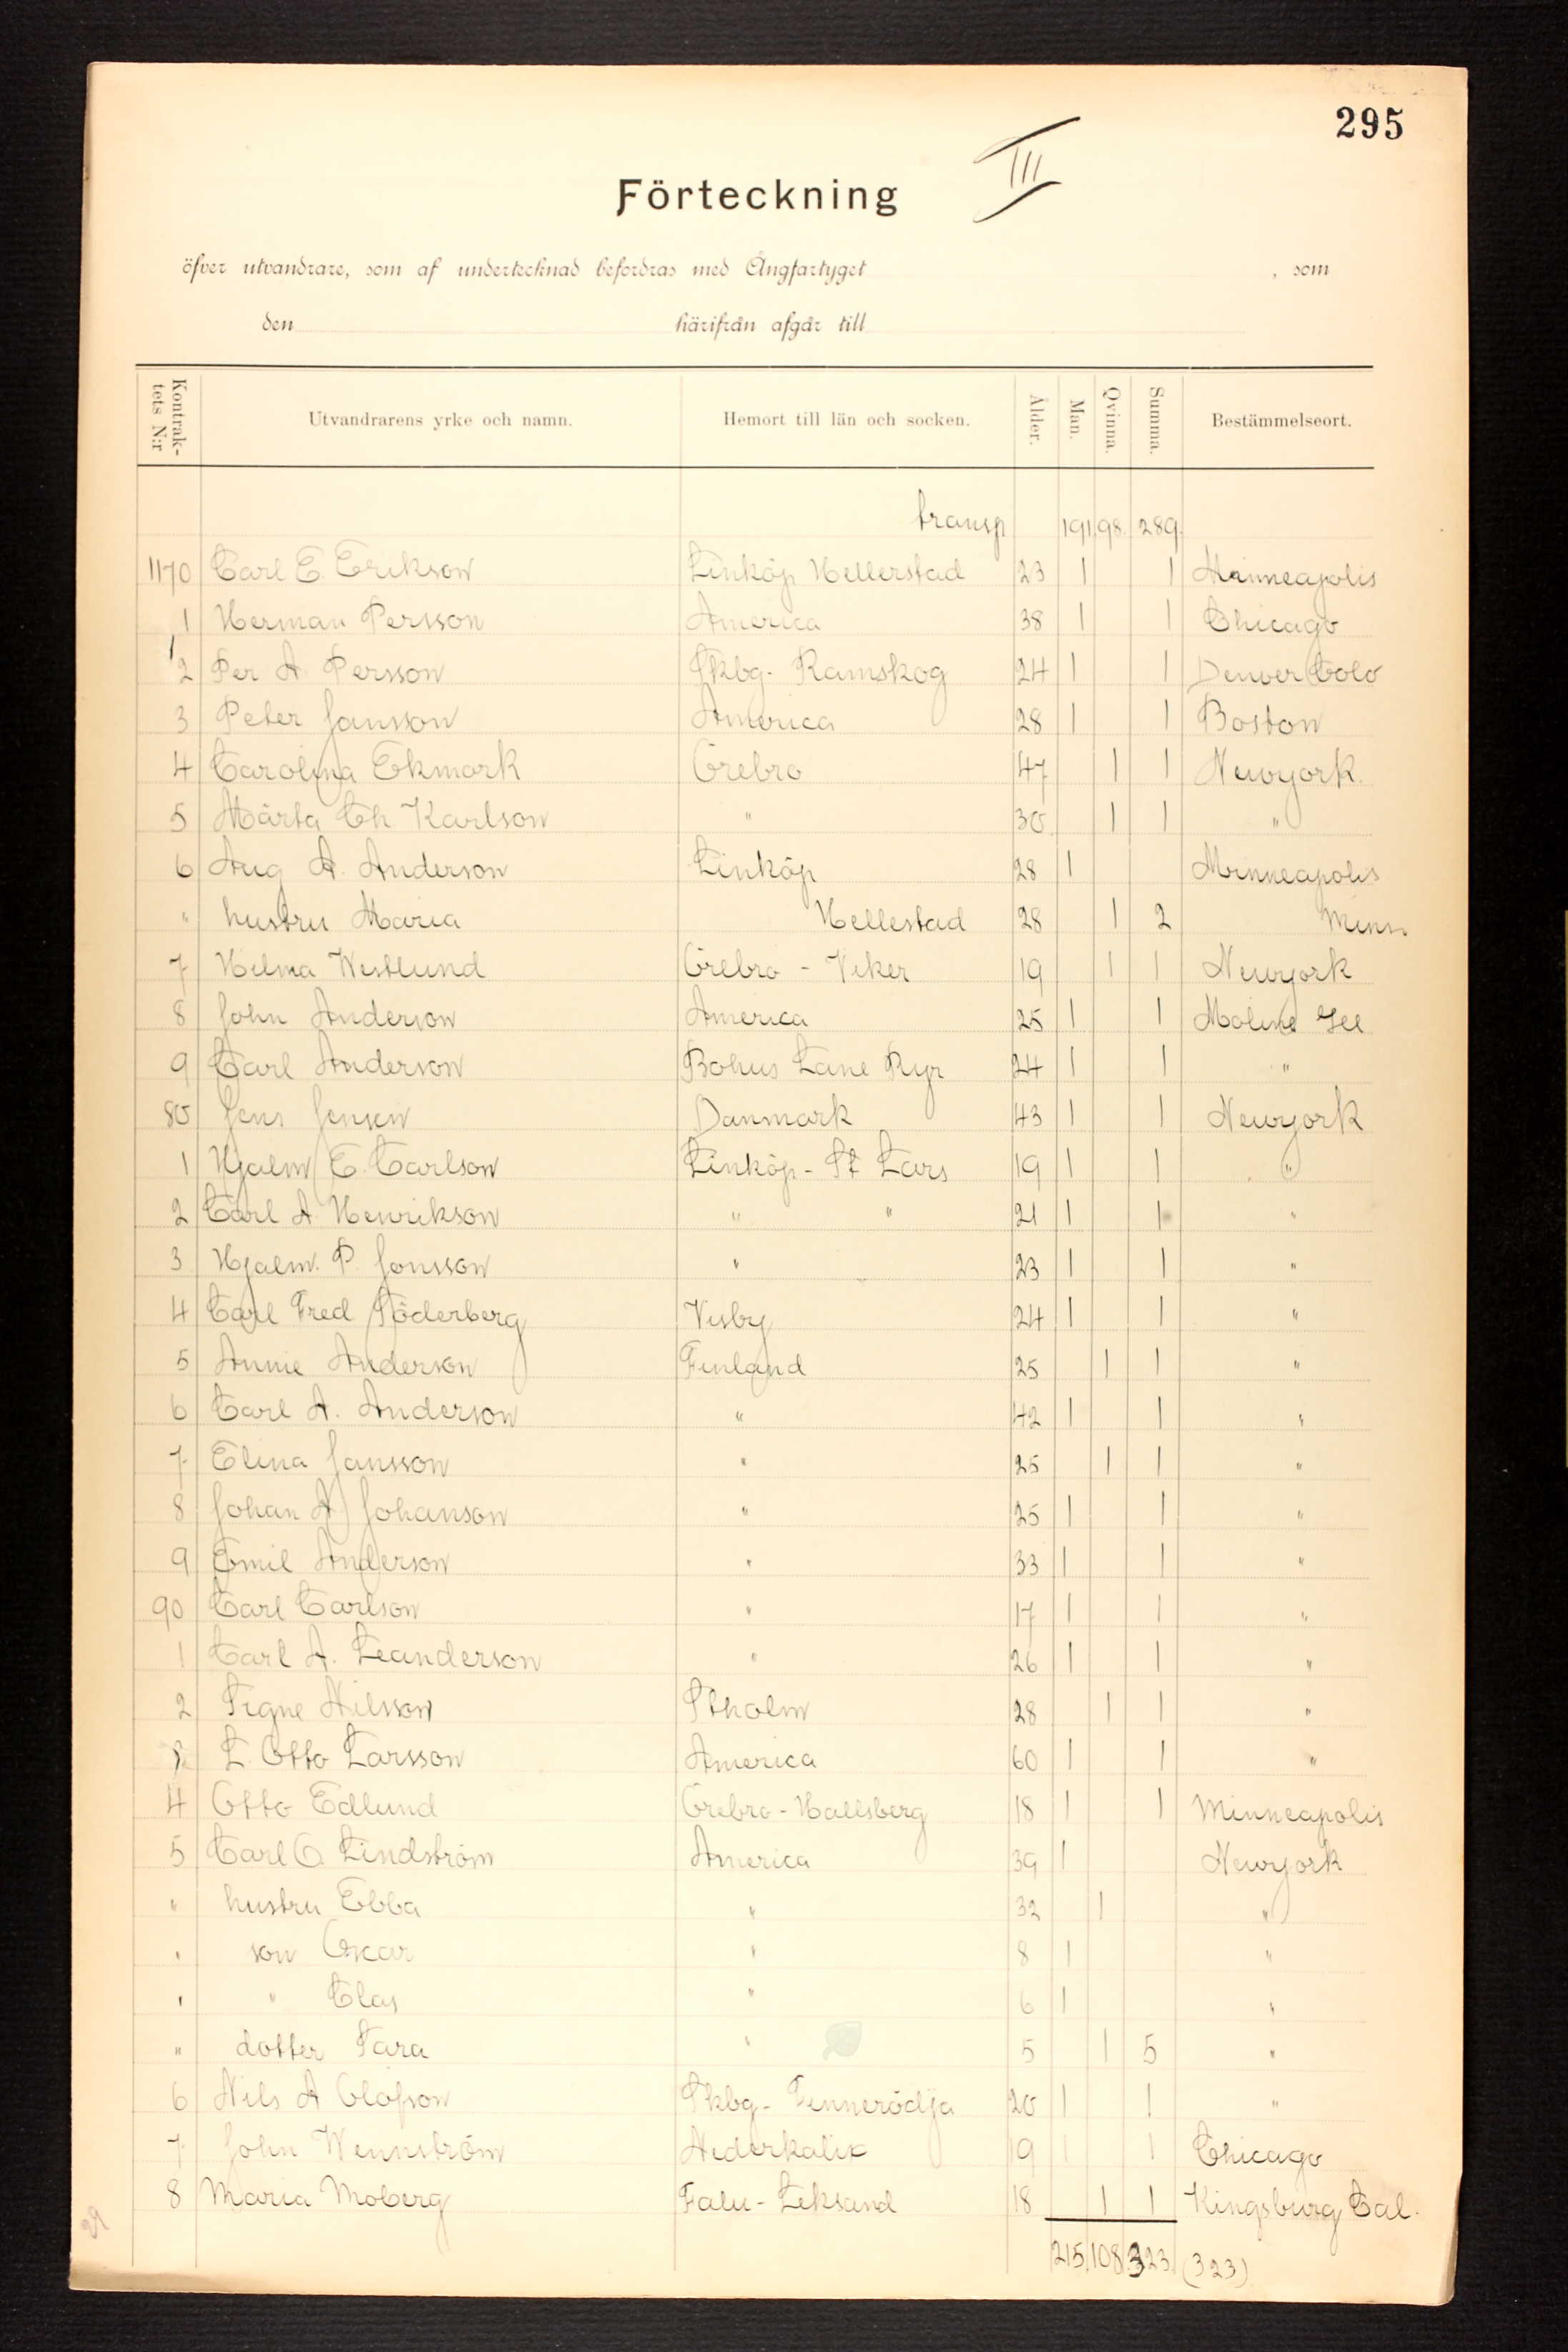 295
III
Förteckning
öfver utvandrare, som af undertecknad befordras med Ångfartyget , som
den härifrån afgår till
Kontrak-tets N:r Utvandrarens yrke och namn. Hemort till län och socken. Ålder. Man. Qvinna. Summa. Bestämmelseort.
transp 191 98. 289.
1170 Carl E. Erikson Linköp Hellerstad 23 1 1 Minneapolis
1 Herman Persson America 38 1 1 Chicago
2 Per A. Persson Skbg - Ramskog 24 1 1 Denver Colo
3 Peter Jansson America 28 1 1 Boston
4 Carolina Ekmark Örebro 47 1 1 Newyork.
5 Märta Ch. Karlson " 30 1 1 "
6 Aug A. Anderson Linköp 28 1 Minneapolis
" hustru Maria Hellestad 28 1 2 Minn
7 Hilma Westlund Örebro - Viker 19 1 1 Newyork
8 John Anderson America 25 1 1 Moline Ill
9 Carl Anderson Bohus Lane Ryr 24 1 1 "
80 Jens Jensen Danmark 43 1 1 Newyork
1 Hjalm E. Carlson Linköp - St Lars 19 1 1 "
2 Carl A. Henrikson " " 21 1 1 "
3 Hjalm. P. Jonsson " 23 1 1 "
4 Carl Fred Söderberg Visby 24 1 1 "
5 Annie Anderson Finland 25 1 1 "
6 Carl A. Anderson " 42 1 1 "
7 Elina Jansson " 25 1 1 "
8 Johan A Johanson " 25 1 1 "
9 Emil Anderson " 33 1 1 "
90 Carl Carlson " 17 1 1 "
1 Carl A. Leanderson " 26 1 1 "
2 Signe Nilsson Stholm 28 1 1 "
L. Otto Larsson America 60 1 1 "
4 Otto Edlund Örebro - Hallsberg 18 1 1 Minneapolis
5 Carl O. Lindström America 39 1 Newyork
" hustru Ebba " 32 1 "
" son Oscar " 8 1 "
" " Clas " 6 1 "
" dotter Sara " 5 1 5 "
6 Nils A Olofson Skbg - Finnerödja 20 1 1 "
7 John Wennström Nederkalix 19 1 1 Chicago
8 Maria Moberg Falu - Leksand 18 1 1 Kingsburg Cal.
215. 108 323. (323)
29